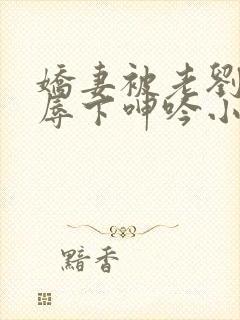 嬌妻被老劉
辱下呻吟小
黯香